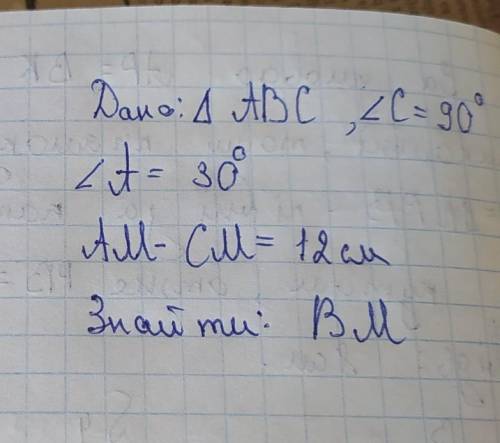 Дано: Δ ABC, ∠C = 90°
∠A = 30°
AM - CM = 12 см
Знайти: BM